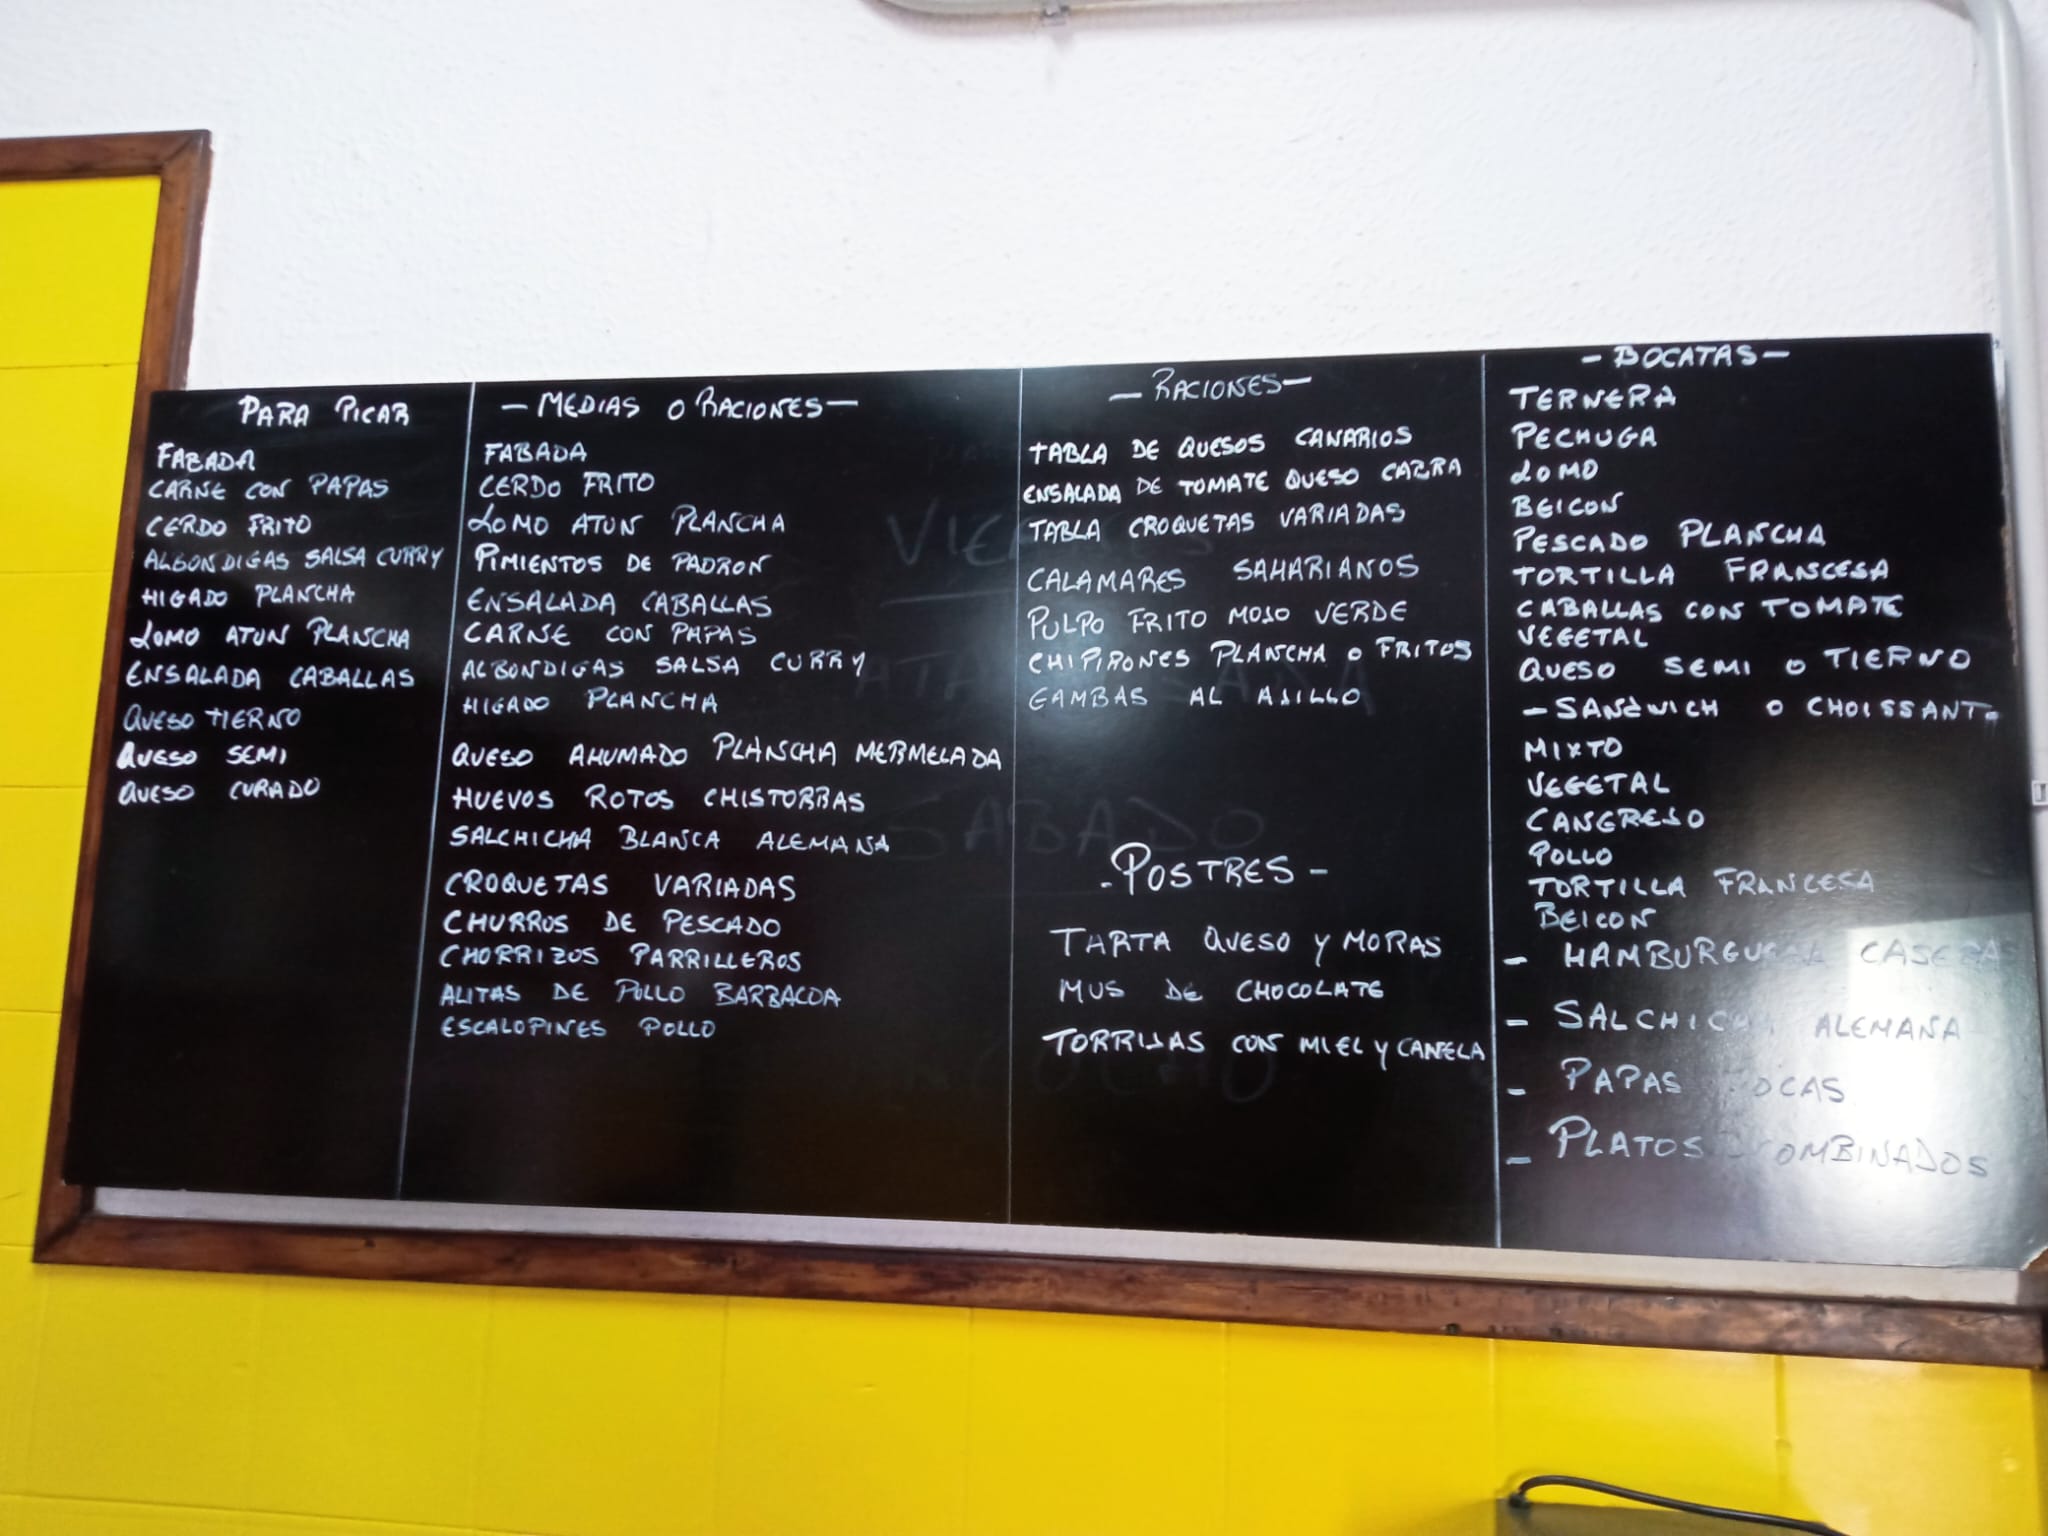 PARA PICAR
FABADA
CARNE CON PAPAS
CERDO FRITO
ALBONDIGAS SALSA CURRY
HIGADO PLANCHA
LOMO ATUN PLANCHA
ENSALADA CABALLAS
QUESO TIERNO
QUESO SEMI
QUESO CURADO
- MEDIAS O RACIONES -
FABADA
CERDO FRITO
LOMO ATUN PLANCHA
PIMIENTOS DE PADRON
ENSALADA CABALLAS
CARNE CON PAPAS
ALBONDIGAS SALSA CURRY
HIGADO PLANCHA
QUESO AHUMADO PLANCHA MERMELADA
HUEVOS ROTOS CHISTORRAS
SALCHICHA BLANCA ALEMANA
CROQUETAS VARIADAS
CHURROS DE PESCADO
CHORRIZOS PARRILLEROS
ALITAS DE POLLO BARBACOA
ESCALOPINES POLLO
- RACIONES -
TABLA DE QUESOS CANARIOS
ENSALADA DE TOMATE QUESO CABRA
TABLA CROQUETAS VARIADAS
CALAMARES SAHARIANOS
PULPO FRITO MOJO VERDE
CHIPIRONES PLANCHA O FRITOS
GAMBAS AL AJILLO
- POSTRES -
TARTA QUESO Y MORAS
MUS DE CHOCOLATE
TORRIJAS CON MIEL Y CANELA
- BOCATAS -
TERNERA
PECHUGA
LOMO
BEICON
PESCADO PLANCHA
TORTILLA FRANCESA
CABALLAS CON TOMATE
VEGETAL
QUESO SEMI O TIERNO
- SANDWICH O CHOISSANT -
MIXTO
VEGETAL
CANGREJO
POLLO
TORTILLA FRANCESA
BEICON
- CASERAS
- SALCHICHA ALEMANA
- PAPAS LOCAS
- PLATOS COMBINADOS